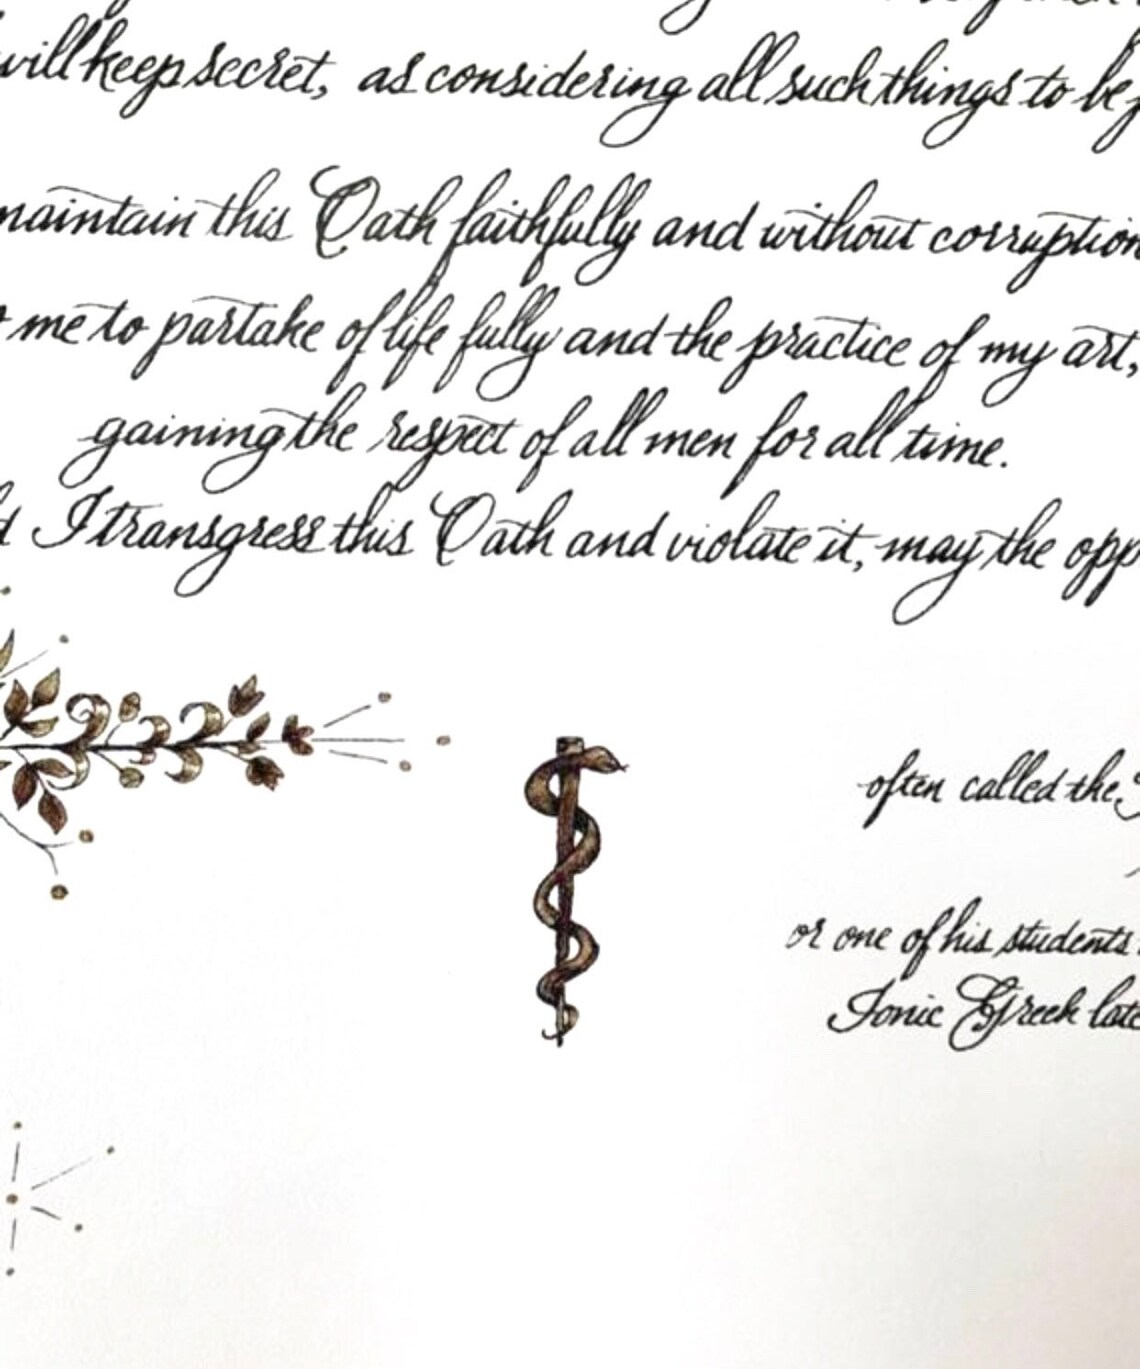 will keep secret, as considering all such things to be
maintain this Oath faithfully and without corruption
me to partake of life fully and the practice of my art,
gaining the respect of all men for all time.
I transgress this Oath and violate it, may the opp
often called the
or one of his students
Ionic Greek late